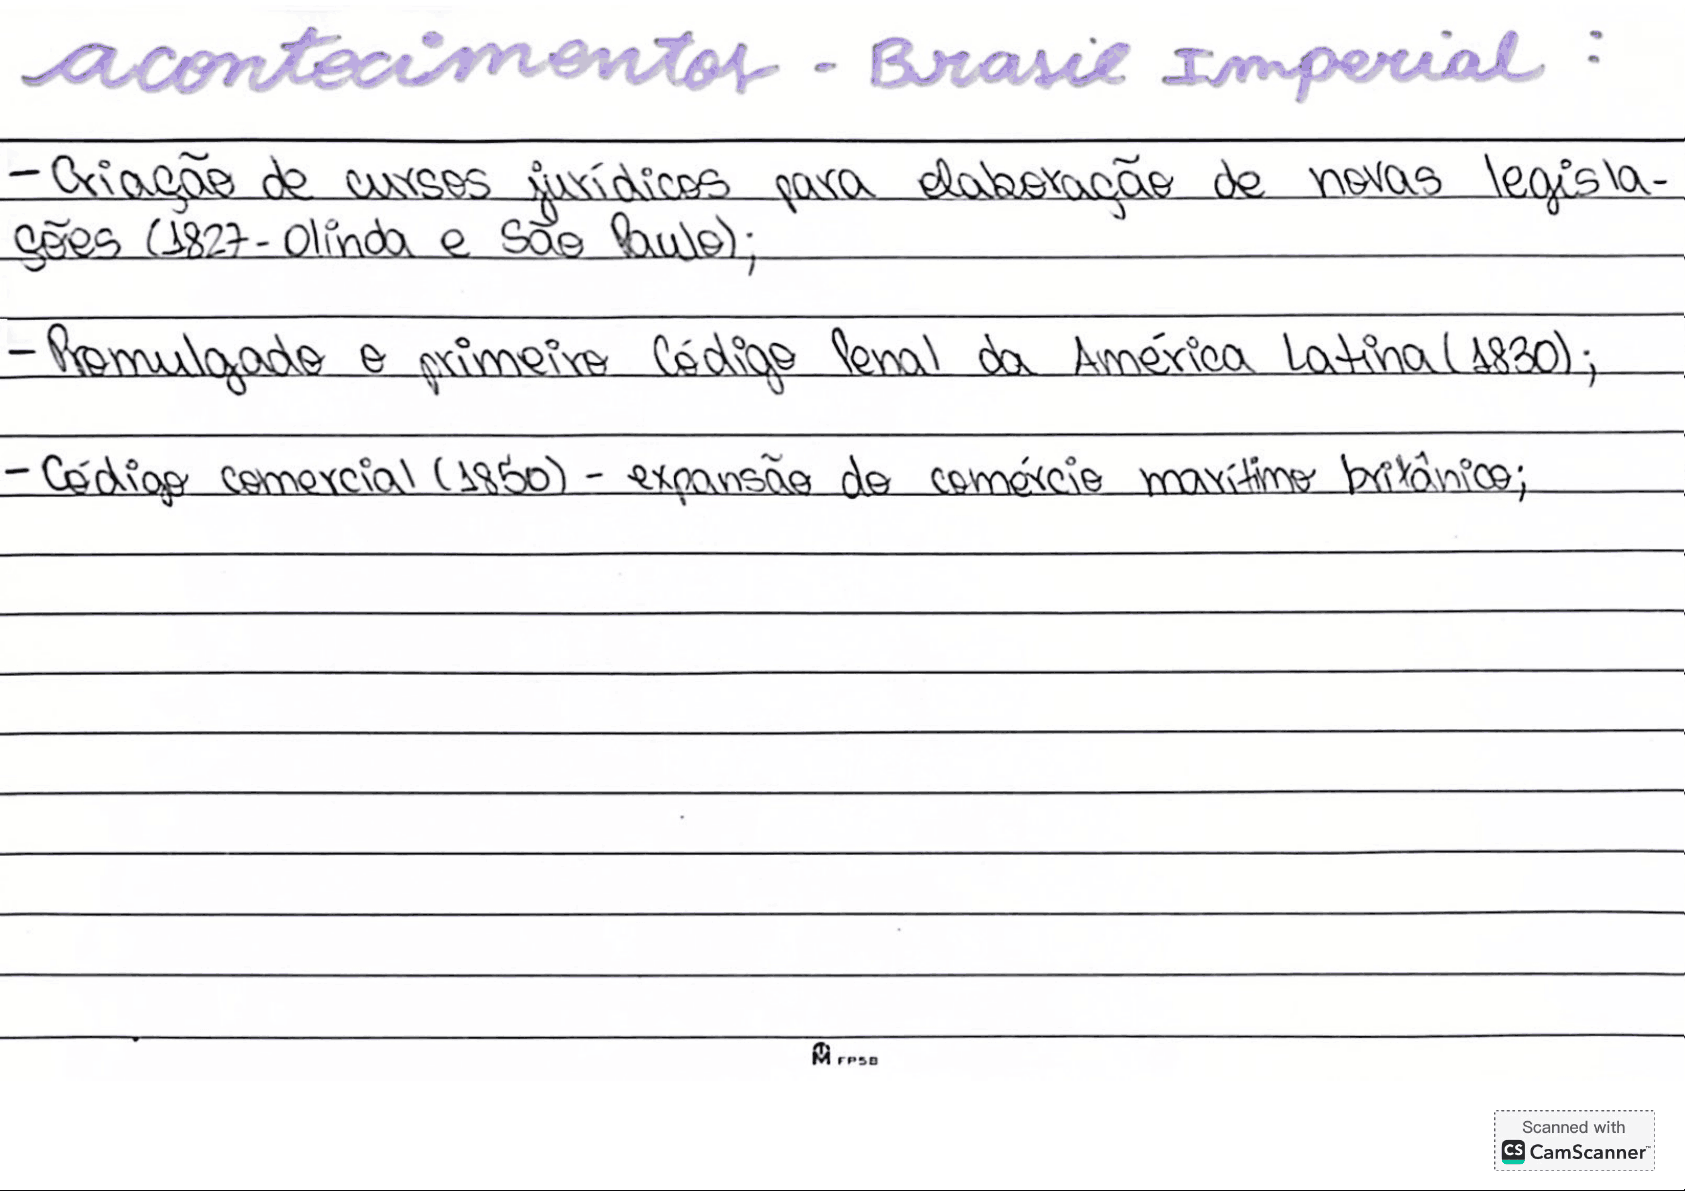 acontecimentos - Brasil Imperial :
- Criação de cursos jurídicos para elaboração de novas legisla-
ções (1827 - Olinda e São Paulo);
- Promulgado o primeiro Código Penal da América Latina (1830);
- Código comercial (1850) - expansão do comércio marítimo britânico;
FPSB
Scanned with
CS CamScanner